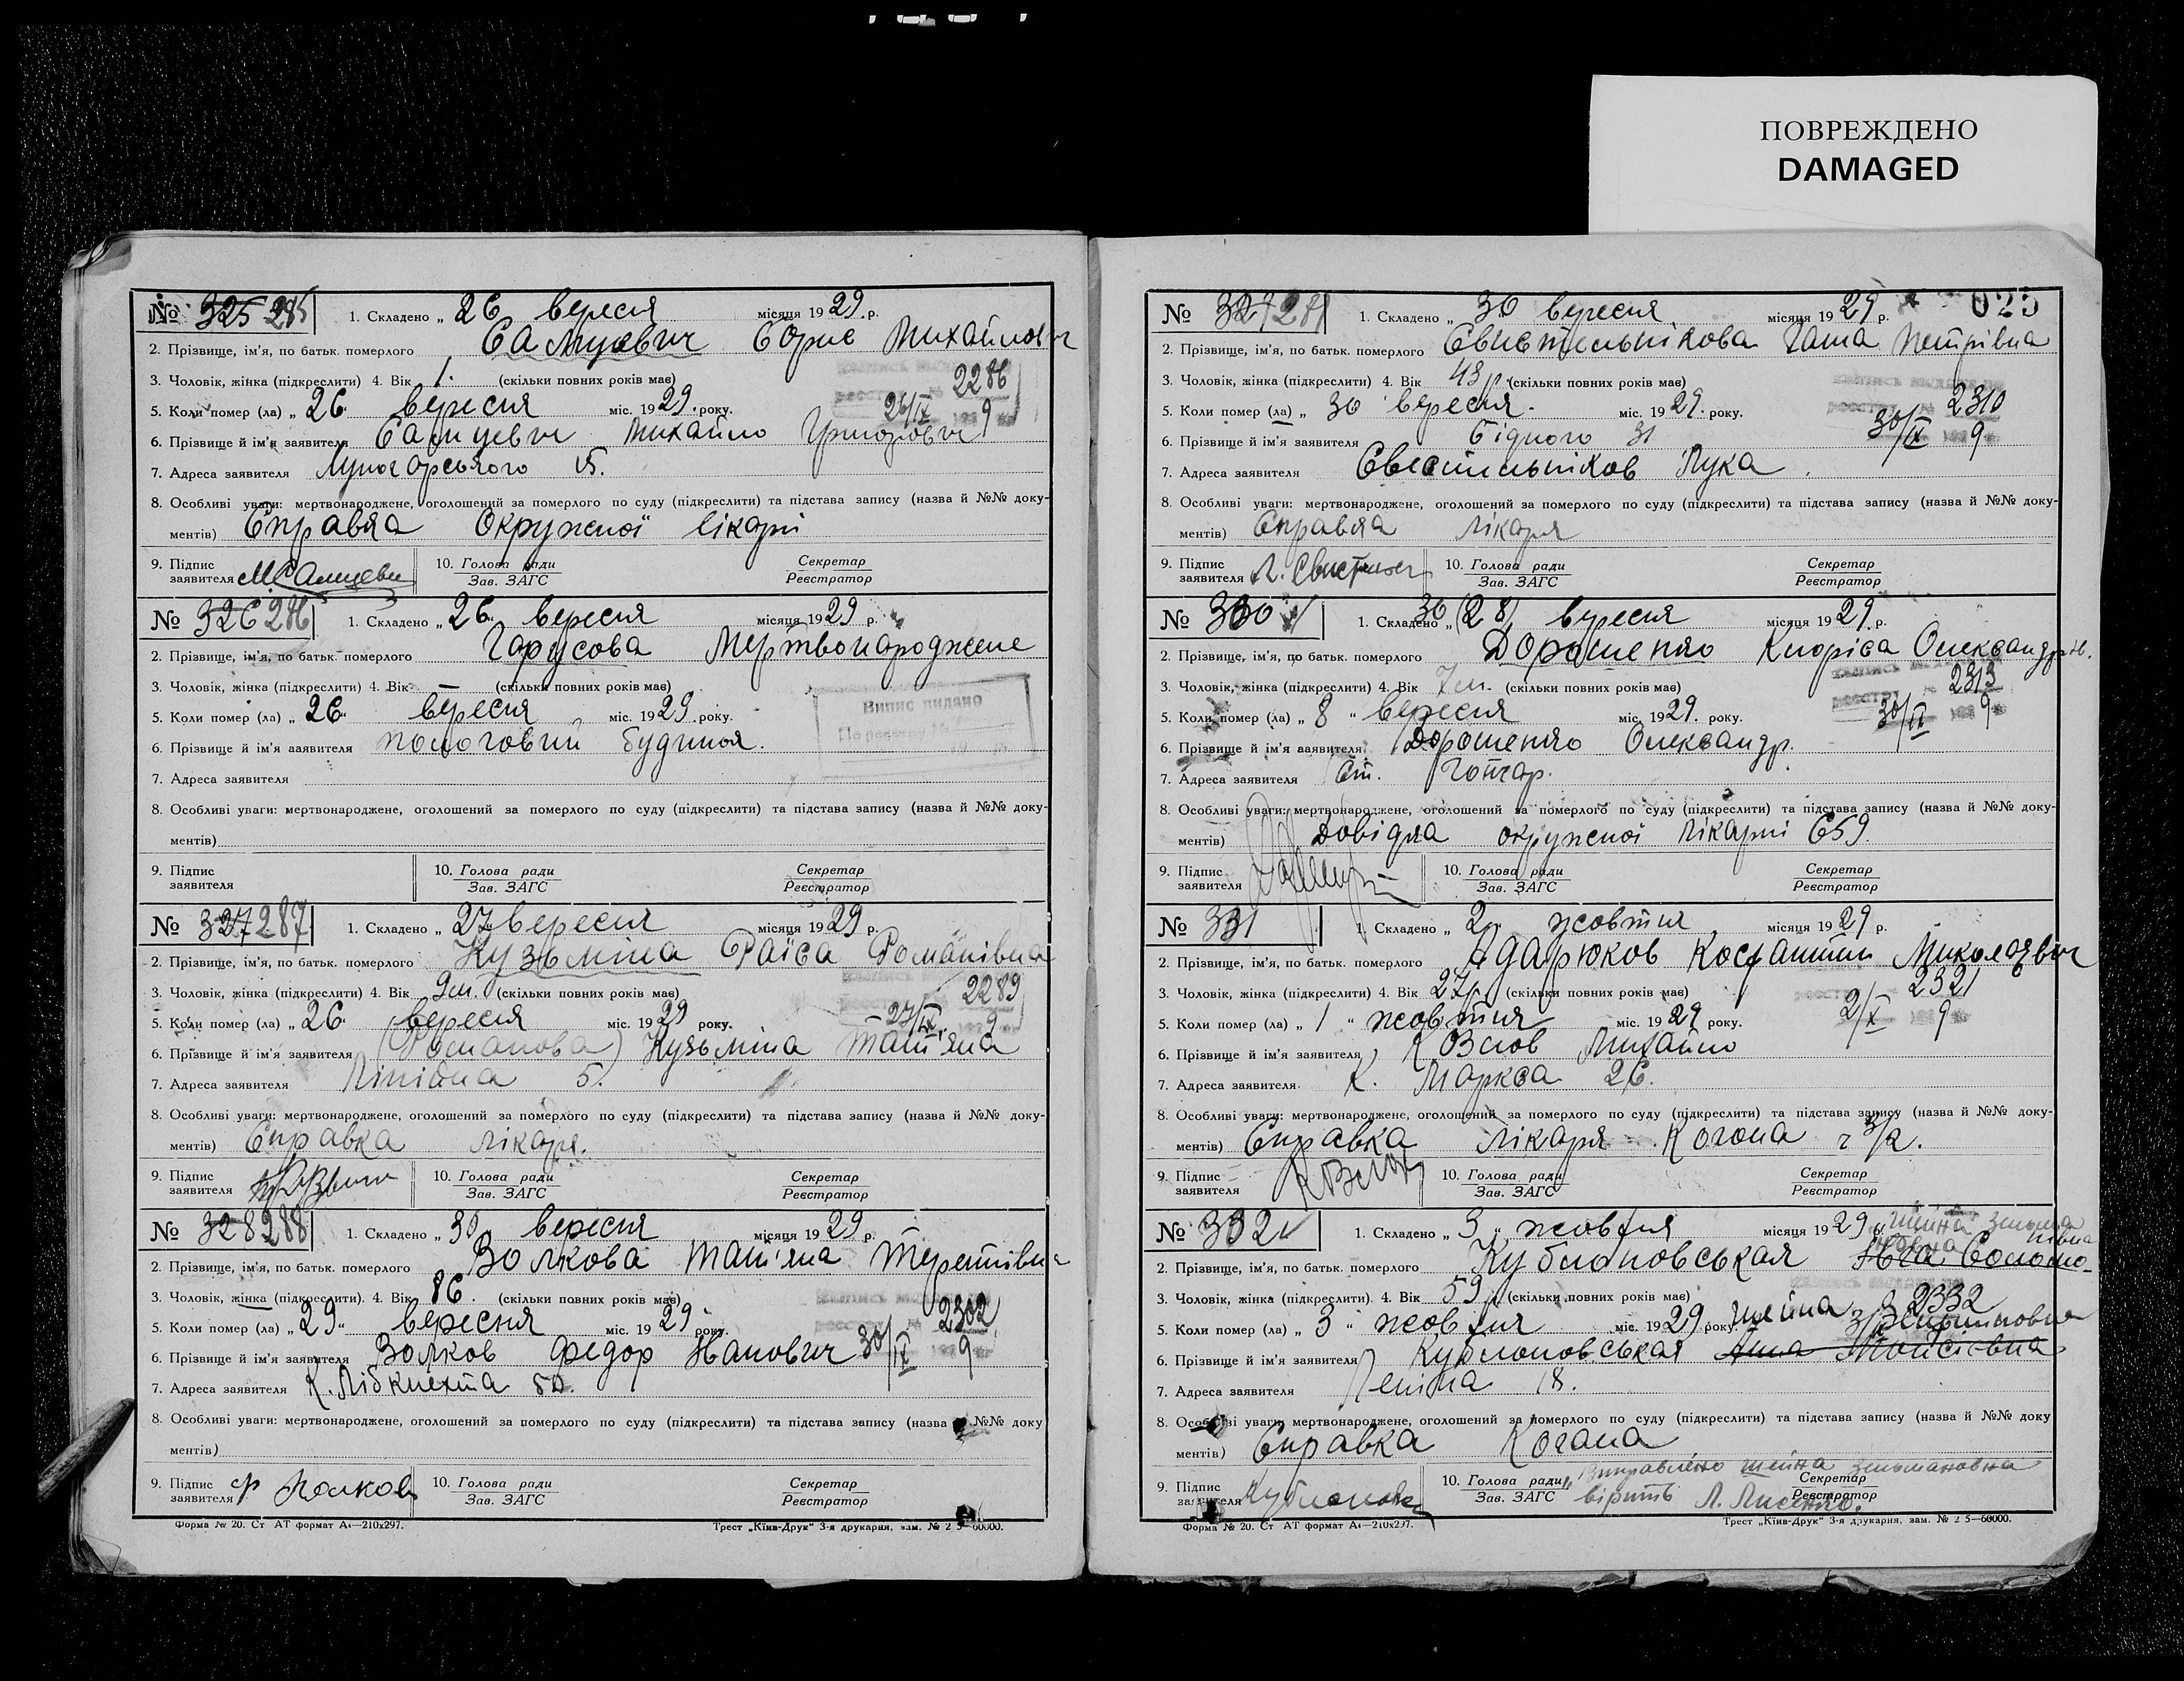 ПОВРЕЖДЕНО
DAMAGED
№ 325 285 1. Складено „ 26 вересня місяця 1929 р.
2. Прізвище, ім'я, по батьк. померлого Борис Михайлович
3. Чоловік, жінка (підкреслити) 4. Вік 1. (скільки повних років має)
2286
5. Коли помер (ла) „ 26 „ вересня міс. 1929 року. 26/IX 9
6. Прізвище й ім'я заявителя Михайло Григорович
7. Адреса заявителя 5.
8. Особливі уваги: мертвонароджене, оголошений за померлого по суду (підкреслити) та підстава запису (назва й №№ доку-
ментів) Справка Окружної лікарні
9. Підпис заявителя
10. Голова ради Зав. ЗАГС
Секретар Реєстратор
№ 326 286 1. Складено „ 26 вересня місяця 1929 р.
2. Прізвище, ім'я, по батьк. померлого Гарусова Мертвонароджене
3. Чоловік, жінка (підкреслити) 4. Вік – (скільки повних років має)
Випис видано
5. Коли помер (ла) „ 26 „ вересня міс. 1929 року.
По реєстру №
6. Прізвище й ім'я заявителя пологовий будинок.
7. Адреса заявителя
8. Особливі уваги: мертвонароджене, оголошений за померлого по суду (підкреслити) та підстава запису (назва й №№ доку-
ментів)
9. Підпис заявителя
10. Голова ради Зав. ЗАГС
Секретар Реєстратор
№ 327 287 1. Складено „ 27 вересня місяця 1929 р.
2. Прізвище, ім'я, по батьк. померлого Кузьміна Раїса Романівна
3. Чоловік, жінка (підкреслити) 4. Вік 9 м. (скільки повних років має)
2289
5. Коли помер (ла) „ 26 „ вересня міс. 1929 року. 27/IX 9
6. Прізвище й ім'я заявителя (Романова) Кузьміна Тат'яна
7. Адреса заявителя 5.
8. Особливі уваги: мертвонароджене, оголошений за померлого по суду (підкреслити) та підстава запису (назва й №№ доку-
ментів) Справка лікаря.
9. Підпис заявителя
10. Голова ради Зав. ЗАГС
Секретар Реєстратор
№ 328 288 1. Складено „ 30 „ вересня місяця 1929 р.
2. Прізвище, ім'я, по батьк. померлого Волкова Тат'яна
3. Чоловік, жінка (підкреслити). 4. Вік 86. (скільки повних років має)
2302
5. Коли помер (ла) „ 29 „ вересня міс. 1929 року.
6. Прізвище й ім'я заявителя Волков Федор Іванович 30/IX 9
7. Адреса заявителя К. Лібкнехта 50.
8. Особливі уваги: мертвонароджене, оголошений за померлого по суду (підкреслити) та підстава запису (назва й №№ доку
ментів)
9. Підпис заявителя Ф Волков
10. Голова ради Зав. ЗАГС
Секретар Реєстратор
Форма № 20. Ст АТ формат А4—210х297. Трест „Київ-Друк" 3-я друкарня, зам. № 2 5—60000.
025
№ 1. Складено „ 30 вересня місяця 1929 р.
2. Прізвище, ім'я, по батьк. померлого Свистельнікова Петрівна
3. Чоловік, жінка (підкреслити) 4. Вік 43 р. (скільки повних років має)
2310
5. Коли помер (ла) „ 30 вересня. міс. 1929. року. 30/IX 9
6. Прізвище й ім'я заявителя Бідного 31
7. Адреса заявителя Свистельніков Лука.
8. Особливі уваги: мертвонароджене, оголошений за померлого по суду (підкреслити) та підстава запису (назва й №№ доку-
ментів) Справка лікаря
9. Підпис заявителя
10. Голова ради Зав. ЗАГС
Секретар Реєстратор
№ 330 1. Складено „ 30 (28) вересня місяця 1929. р.
2. Прізвище, ім'я, по батьк. померлого Дорошенко
3. Чоловік, жінка (підкреслити) 4. Вік 7 м. (скільки повних років має)
2313
5. Коли помер (ла) „ 8 „ вересня міс. 1929. року. 30/IX 9
6. Прізвище й ім'я заявителя Дорошенко Олександр.
7. Адреса заявителя Ст.
8. Особливі уваги: мертвонароджене, оголошений за померлого по суду (підкреслити) та підстава запису (назва й №№ доку-
ментів) Довідка окружної лікарні 659.
9. Підпис заявителя
10. Голова ради Зав. ЗАГС
Секретар Реєстратор
№ 331 1. Складено „ 2 „ жовтня місяця 1929 р.
2. Прізвище, ім'я, по батьк. померлого Адарюков Костантин Миколаєвич
3. Чоловік, жінка (підкреслити) 4. Вік 27 р. (скільки повних років має)
2321
5. Коли помер (ла) „ 1 „ жовтня міс. 1929 року. 2/X 9
6. Прізвище й ім'я заявителя Михайло
7. Адреса заявителя К. Маркса 26.
8. Особливі уваги: мертвонароджене, оголошений за померлого по суду (підкреслити) та підстава запису (назва й №№ доку-
ментів) Справка лікаря Когона
9. Підпис заявителя
10. Голова ради Зав. ЗАГС
Секретар Реєстратор
№ 332 1. Складено „ 3 „ жовтня місяця 1929 р.
2. Прізвище, ім'я, по батьк. померлого Кублановськая
3. Чоловік, жінка (підкреслити). 4. Вік 59 (скільки повних років має)
2332
5. Коли помер (ла) „ 3 „ жовтня міс. 1929 року.
6. Прізвище й ім'я заявителя Кублоновськая Анна Мойсіевна
7. Адреса заявителя Леніна 18.
8. Особливі уваги: мертвонароджене, оголошений за померлого по суду (підкреслити) та підстава запису (назва й №№ доку
ментів) Справка Когана
9. Підпис заявителя
10. Голова ради Зав. ЗАГС
Виправлено Шейна Зельмановна
вірить Л. Лисенко.
Секретар Реєстратор
Форма № 20. Ст АТ формат А4—210х297. Трест „Київ-Друк" 3-я друкарня, зам. № 2 5—60000.